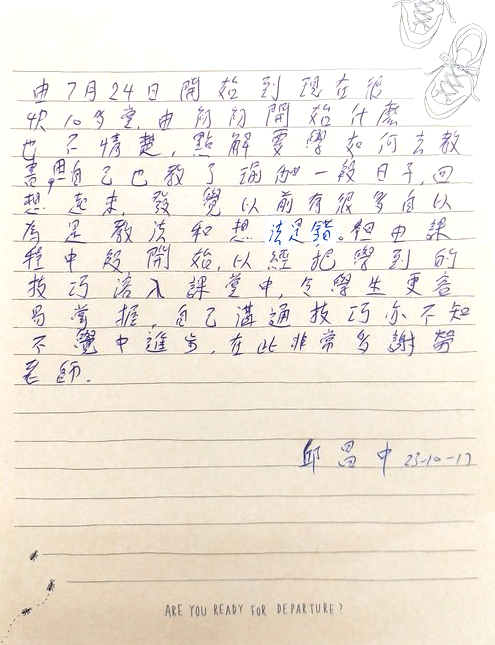 由7月24日開始到現在很
快10多堂,由前初開始什麼
也不情楚,點解要學如何去教
書,但自己也教了瑜伽一段日子,回
想起來,發覺以前有很多自以
為是教法和想法是錯。但由課
程中段開始,以經把學到的
技巧溶入課堂中,令學生更容
易掌握,自己溝通技巧亦不知
不覺中進步,在此非常多謝勞
老師.
邱昌中 23-10-17
ARE YOU READY FOR DEPARTURE?